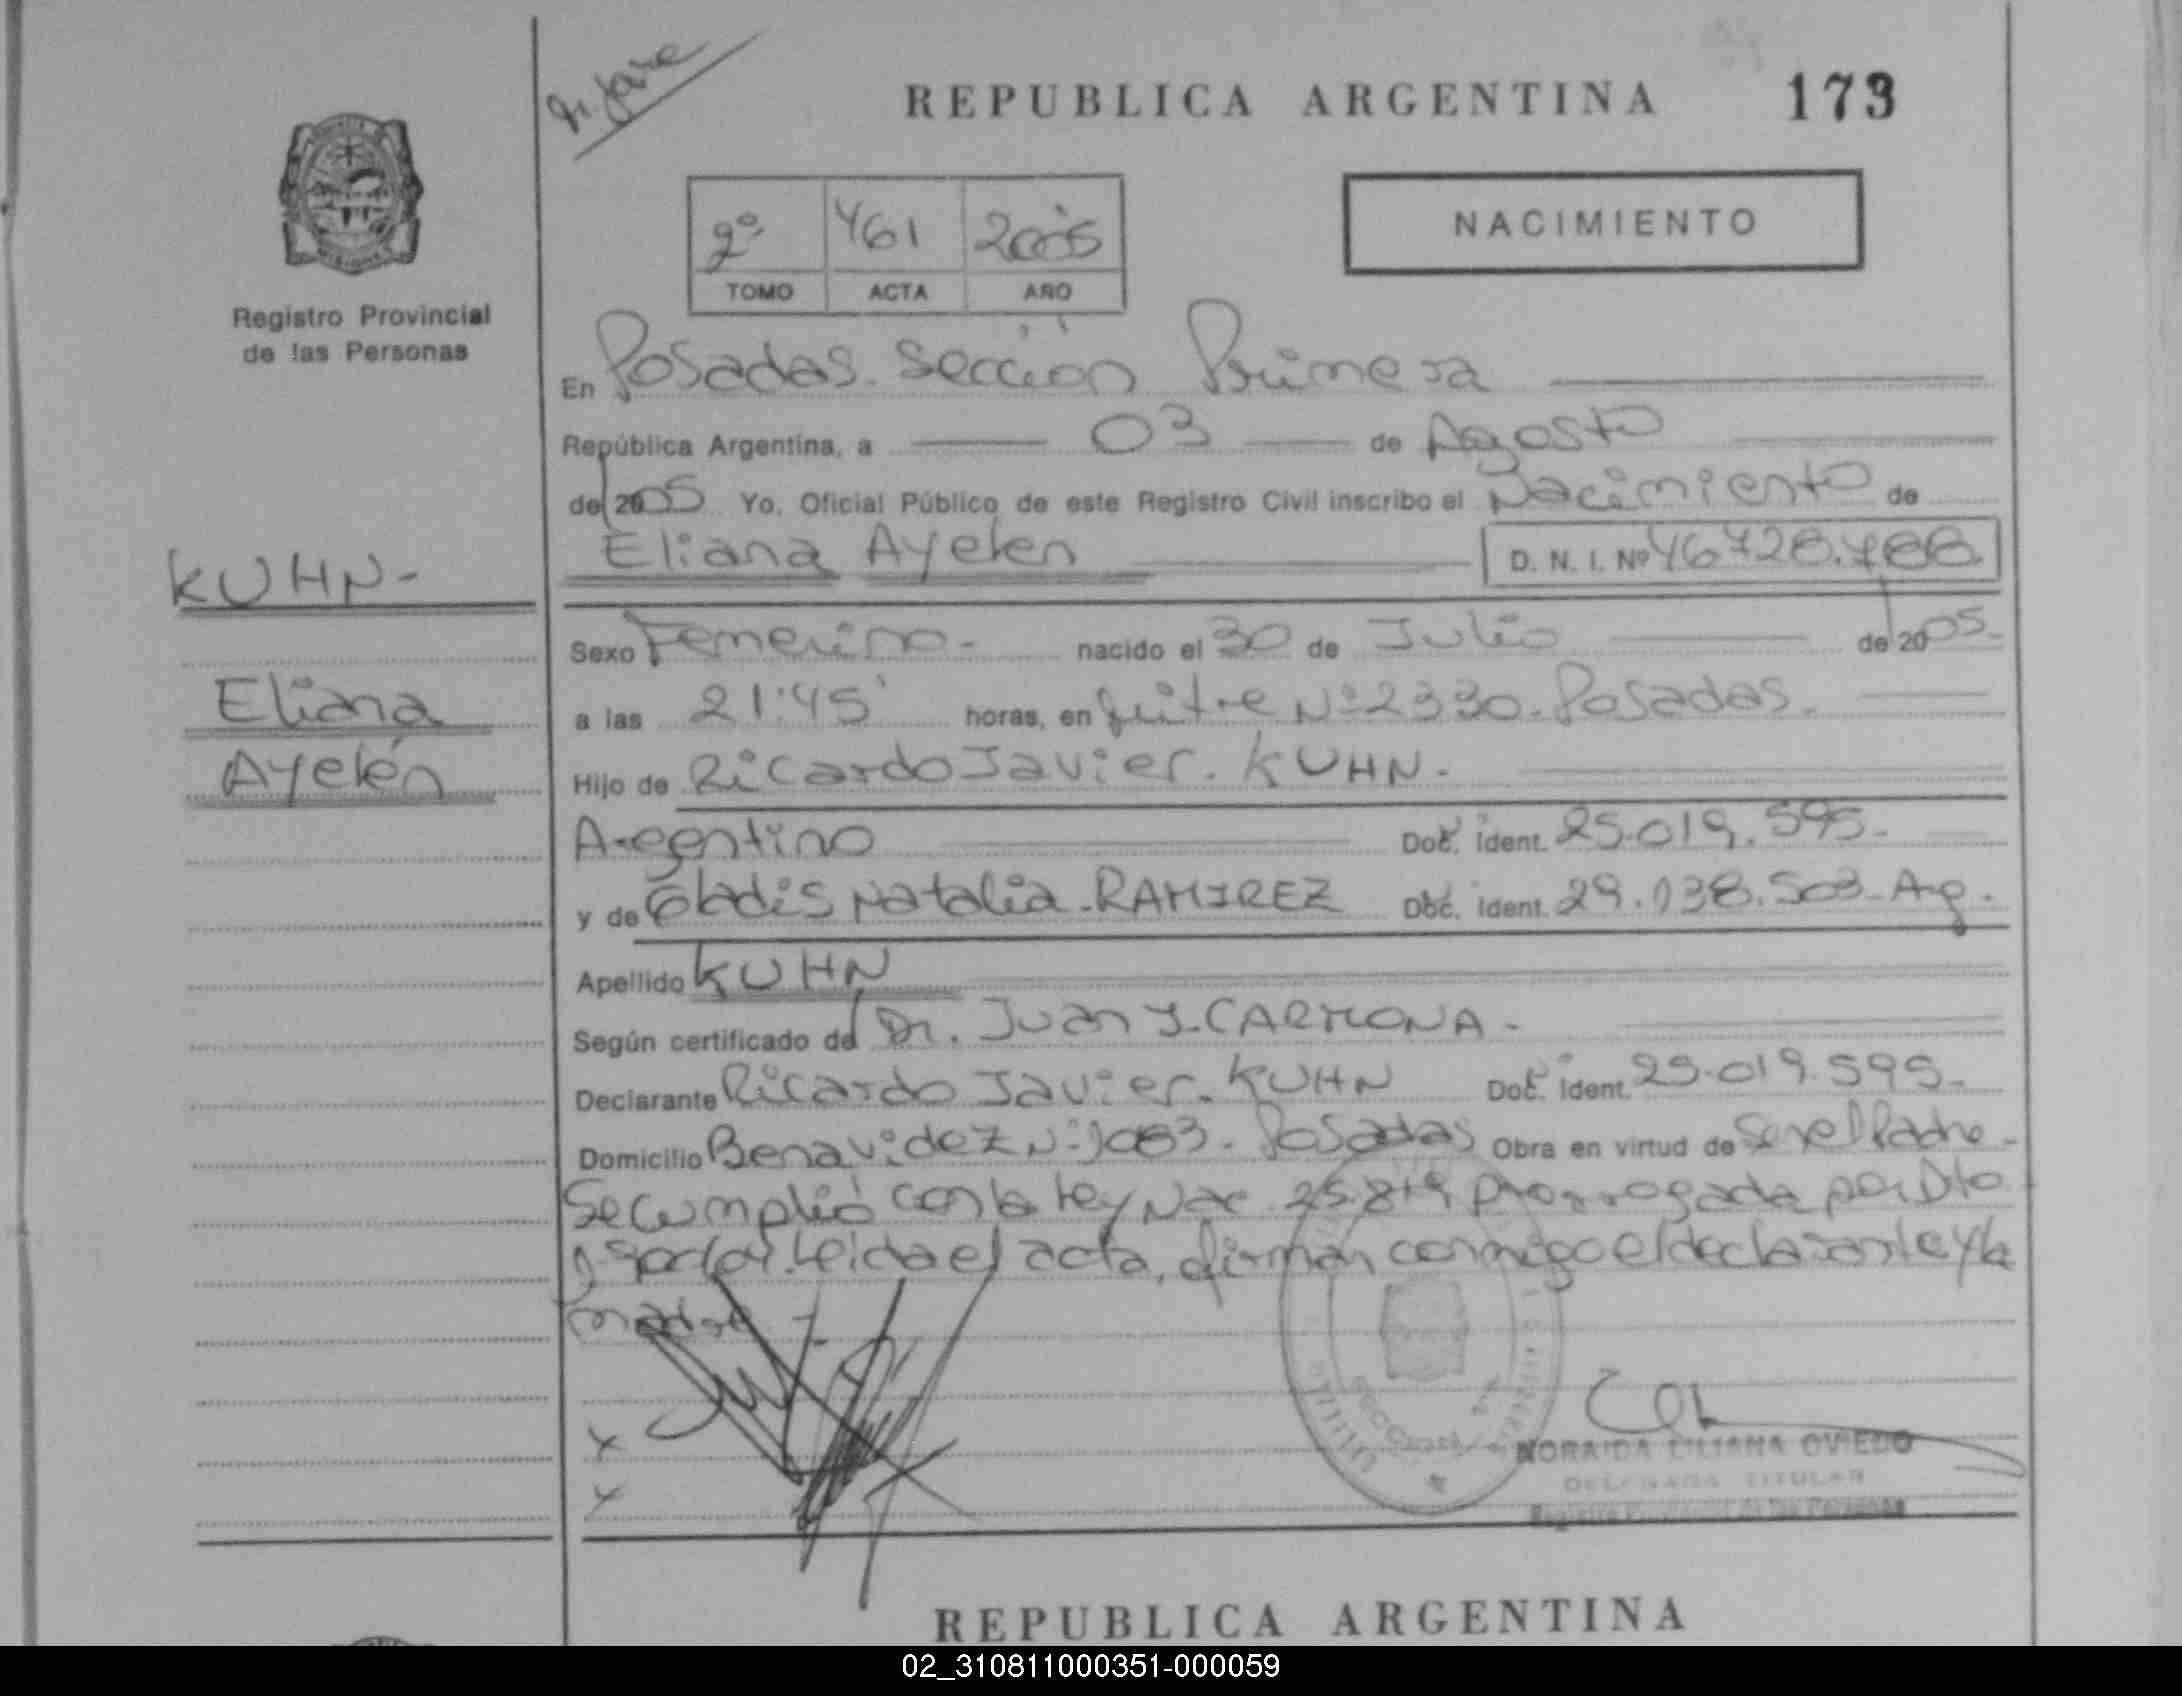 Di fare
REPUBLICA ARGENTINA 173
2º 461 2005
TOMO ACTA AÑO
NACIMIENTO
Registro Provincial
de las Personas
En Posadas. Sección Primera
República Argentina, a 03 de Agosto
de 2005 Yo, Oficial Público de este Registro Civil inscribo el Nacimiento de
Eliana Ayelen D. N. I. Nº 46.728.788
KUHN-
Eliana
Ayelén
Sexo Femenino - nacido el 30 de Julio de 2005-
a las 21:45' horas, en Nº 2330. Posadas.
Hijo de Ricardo Javier. KUHN.
Argentino Doc. ident. 25.019.595.
y de Gladis Natalia. RAMIREZ Doc. ident. 29.138.503-Arg.
Apellido KUHN
Según certificado de Dr. Juan J. CARMONA-
Declarante Ricardo Javier. KUHN Doc. ident. 25.019.595-
Domicilio Benavidez Nº 1083. Posadas Obra en virtud de Ser el Padre-
Se cumplió con la Ley Nac 25.819 prorrogada por Dto
Leida el acta, firman conmigo el declarante y la
madre
x
x
NORAIDA LILIANA OVIEDO
DELEGADA TITULAR
Registro Provincial de las Personas
REPUBLICA ARGENTINA
02_310811000351-000059